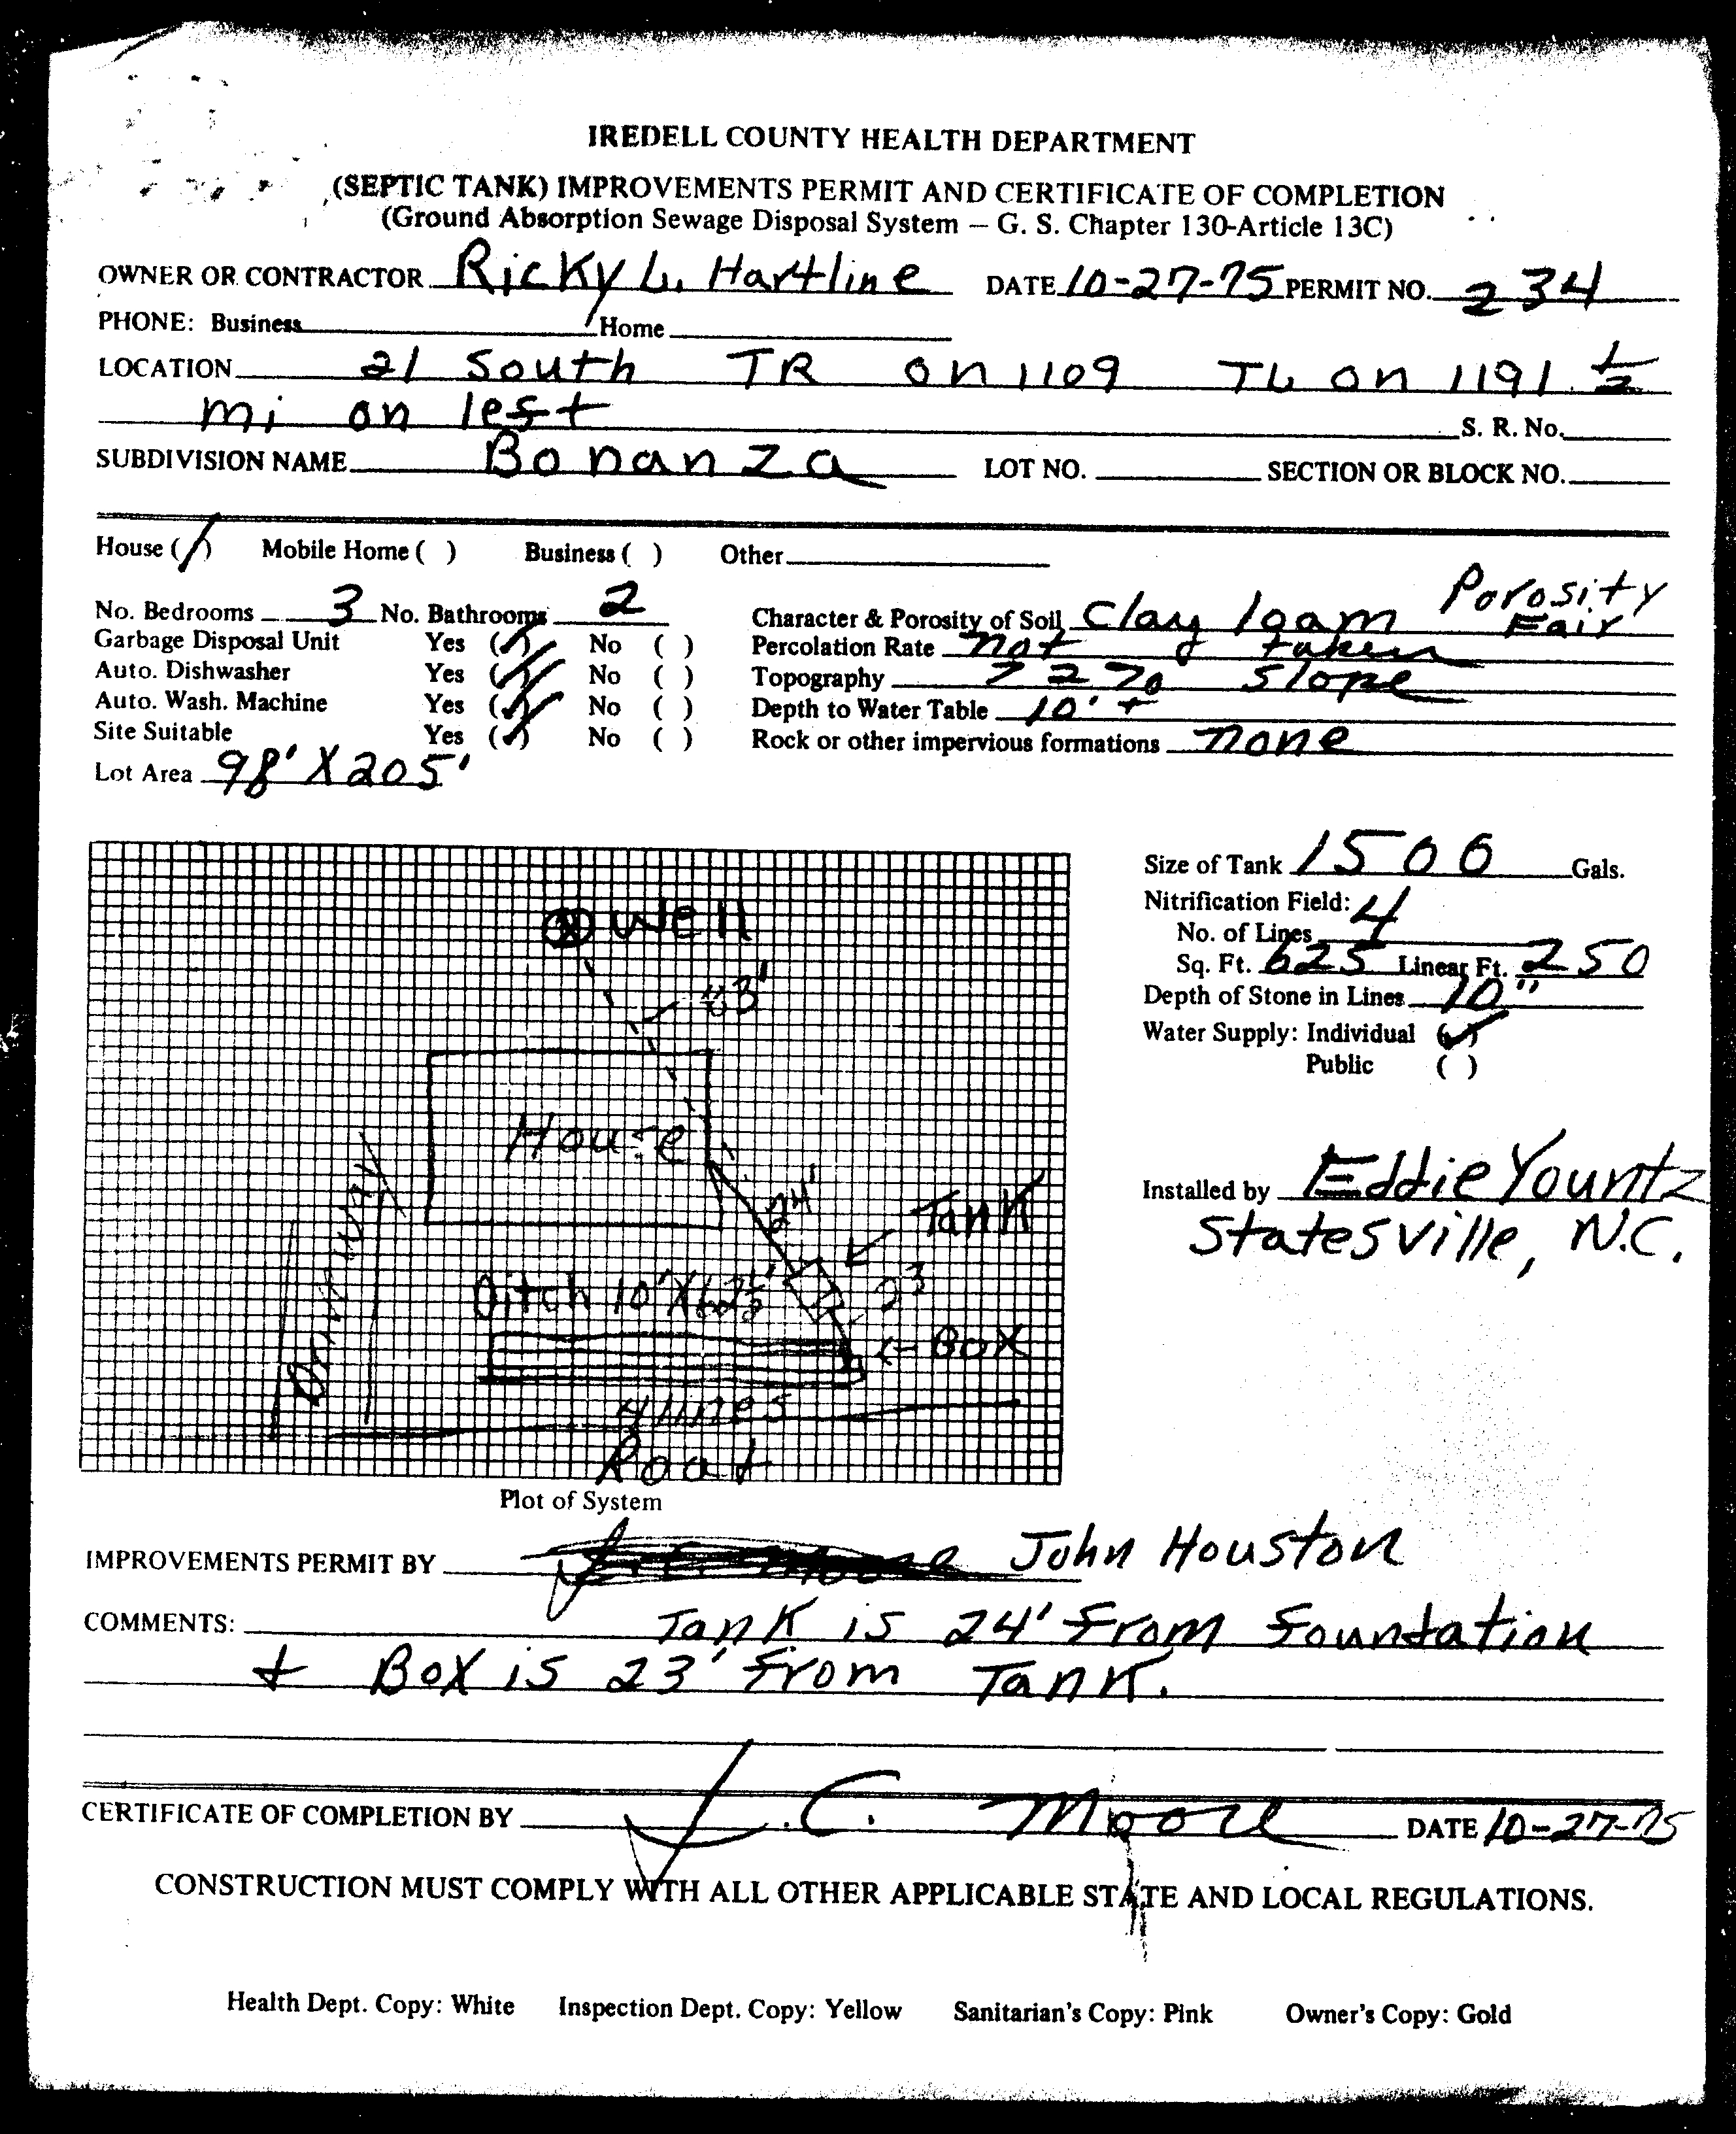 IREDELL COUNTY HEALTH DEPARTMENT
(SEPTIC TANK) IMPROVEMENTS PERMIT AND CERTIFICATE OF COMPLETION
(Ground Absorption Sewage Disposal System — G. S. Chapter 130-Article 13C)
OWNER OR CONTRACTOR Ricky L. Hartline DATE 10-27-75 PERMIT NO. 234
PHONE: Business Home
LOCATION 21 South TR on 1109 TL on 1191 1/2
mi on left S. R. No.
SUBDIVISION NAME Bonanza LOT NO. SECTION OR BLOCK NO.
House (/) Mobile Home ( ) Business ( ) Other
No. Bedrooms 3 No. Bathrooms 2
Garbage Disposal Unit Yes (✓) No ( )
Auto. Dishwasher Yes (✓) No ( )
Auto. Wash. Machine Yes (✓) No ( )
Site Suitable Yes (✓) No ( )
Lot Area 98' X 205'
Character & Porosity of Soil Clay loam Porosity Fair
Percolation Rate not taken
Topography 2% slope
Depth to Water Table 10' +
Rock or other impervious formations none
Size of Tank 1500 Gals.
Nitrification Field:
No. of Lines 4
Sq. Ft. 625 Linear Ft. 250
Depth of Stone in Lines 10"
Water Supply: Individual (✓)
Public ( )
Installed by Eddie Yountz
Statesville, N.C.
Well
House
24'
Tank
Ditch 10' X 62 1/2'
23
Box
4 lines
Driveway
Road
Plot of System
IMPROVEMENTS PERMIT BY John Houston
COMMENTS: Tank is 24' from foundation
+ Box is 23' from Tank.
CERTIFICATE OF COMPLETION BY J. C. Moore DATE 10-27-75
CONSTRUCTION MUST COMPLY WITH ALL OTHER APPLICABLE STATE AND LOCAL REGULATIONS.
Health Dept. Copy: White Inspection Dept. Copy: Yellow Sanitarian's Copy: Pink Owner's Copy: Gold